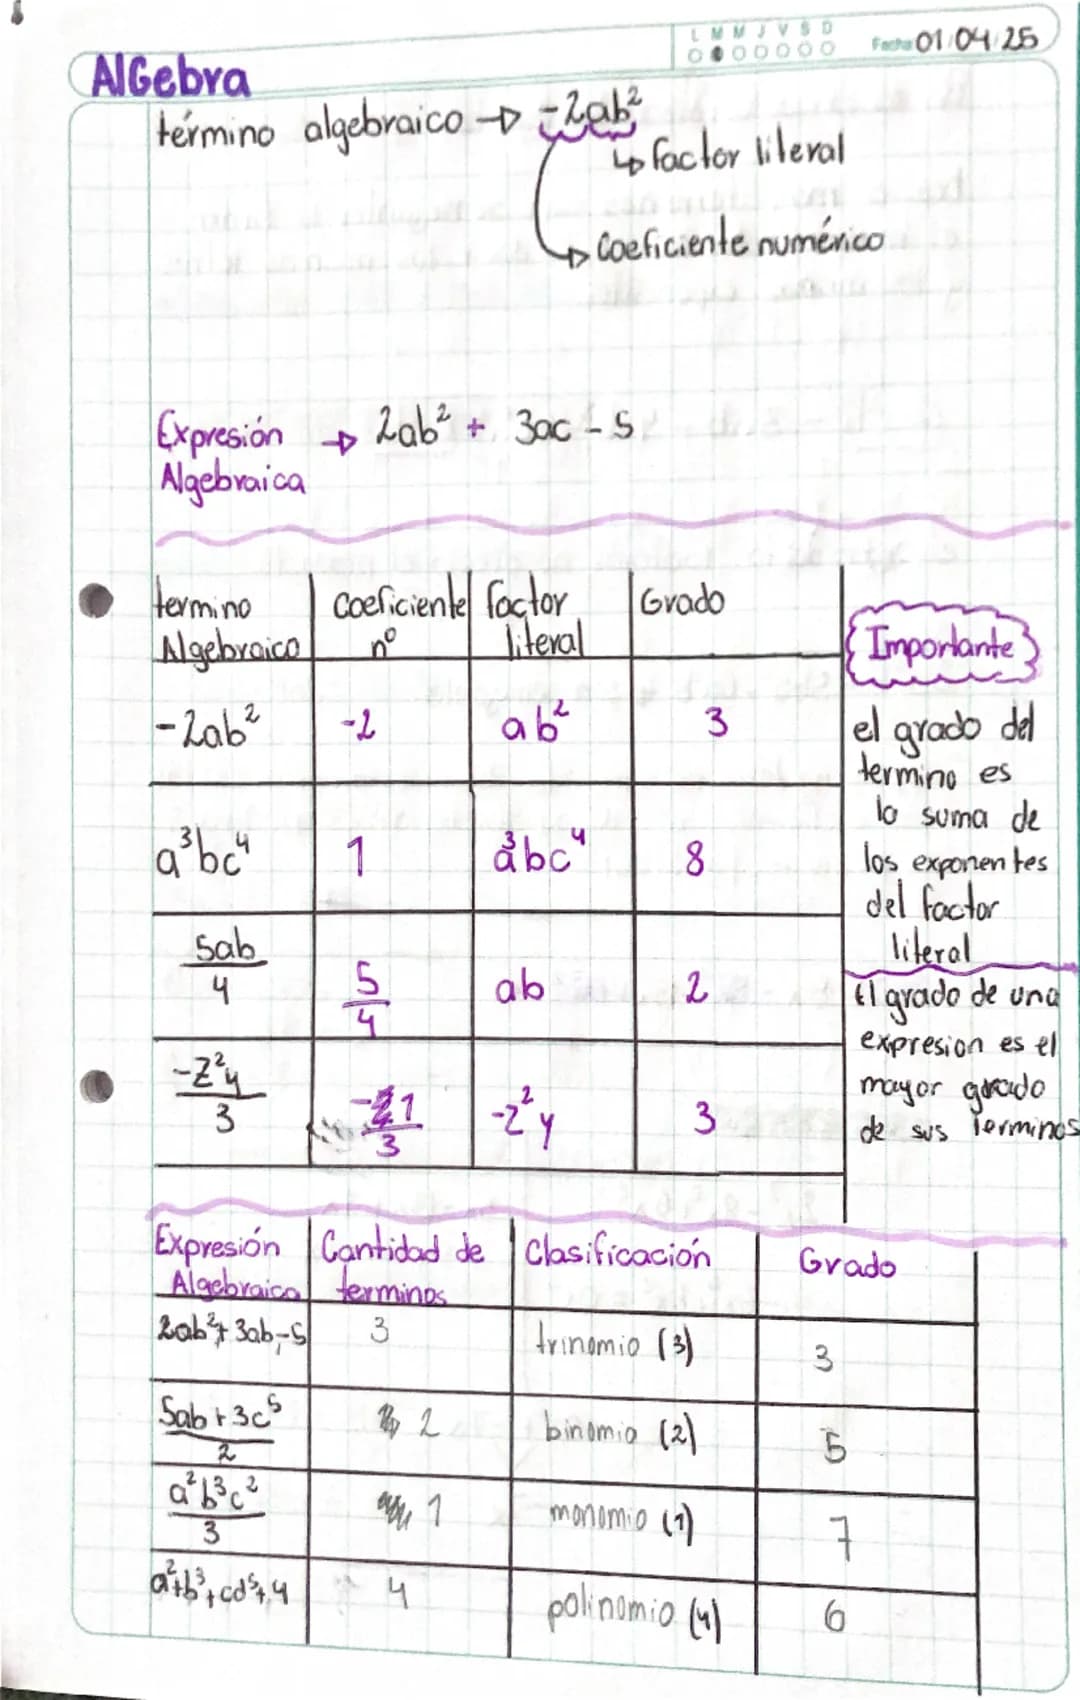 L M M J V S D
Fecha 01 04 25
AlGebra
término algebraico → -2ab²
↳ factor literal
→ Coeficiente numérico
Expresión → 2ab² + 3ac - 5
Algebraica
termino Algebraico | Coeficiente nº | factor literal | Grado
-2ab² | -2 | ab² | 3
a³bc⁴ | 1 | a³bc⁴ | 8
5ab/4 | 5/4 | ab | 2
-z²y/3 | -1/3 | -z²y | 3
Importante
el grado del
termino es
la suma de
los exponentes
del factor
literal
El grado de una
expresion es el
mayor grado
de sus terminos
Expresión Algebraica | Cantidad de terminos | Clasificación | Grado
2ab²+3ab-5 | 3 | trinomio (3) | 3
5ab+3c⁵/2 | 2 | binomio (2) | 5
a²b³c²/3 | 1 | monomio (1) | 7
a²+b³+cd⁵+4 | 4 | polinomio (4) | 6